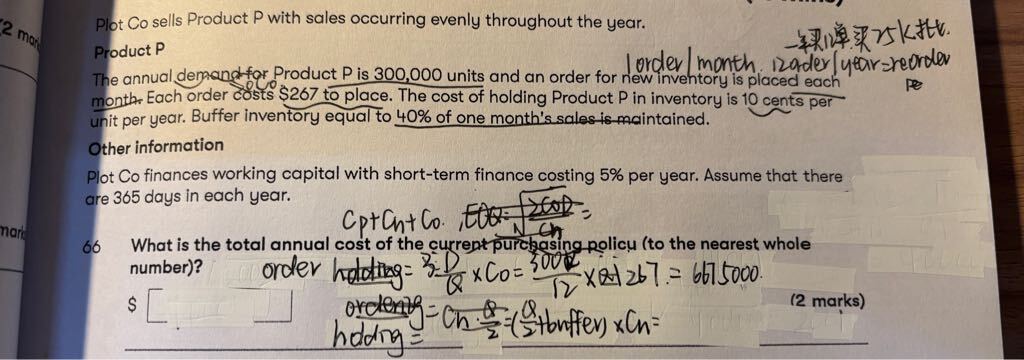 2 mar
Plot Co sells Product P with sales occurring evenly throughout the year.
Product P
1 order/month. 12 order/year = reorder
The annual demand for Product P is 300,000 units and an order for new inventory is placed each
month. Each order costs $267 to place. The cost of holding Product P in inventory is 10 cents per
unit per year. Buffer inventory equal to 40% of one month's sales is maintained.
Other information
Plot Co finances working capital with short-term finance costing 5% per year. Assume that there
are 365 days in each year.
Cp+Cn+Co. EOQ = √2COD/Ch =
mark
66 What is the total annual cost of the current purchasing policy (to the nearest whole
number)?
order holding = D/Q × Co = 12 × 267 = 6675000
$
(2 marks)
ordering = Ch · Q/2 = (Q/2 + buffer) × Cn =
holding =